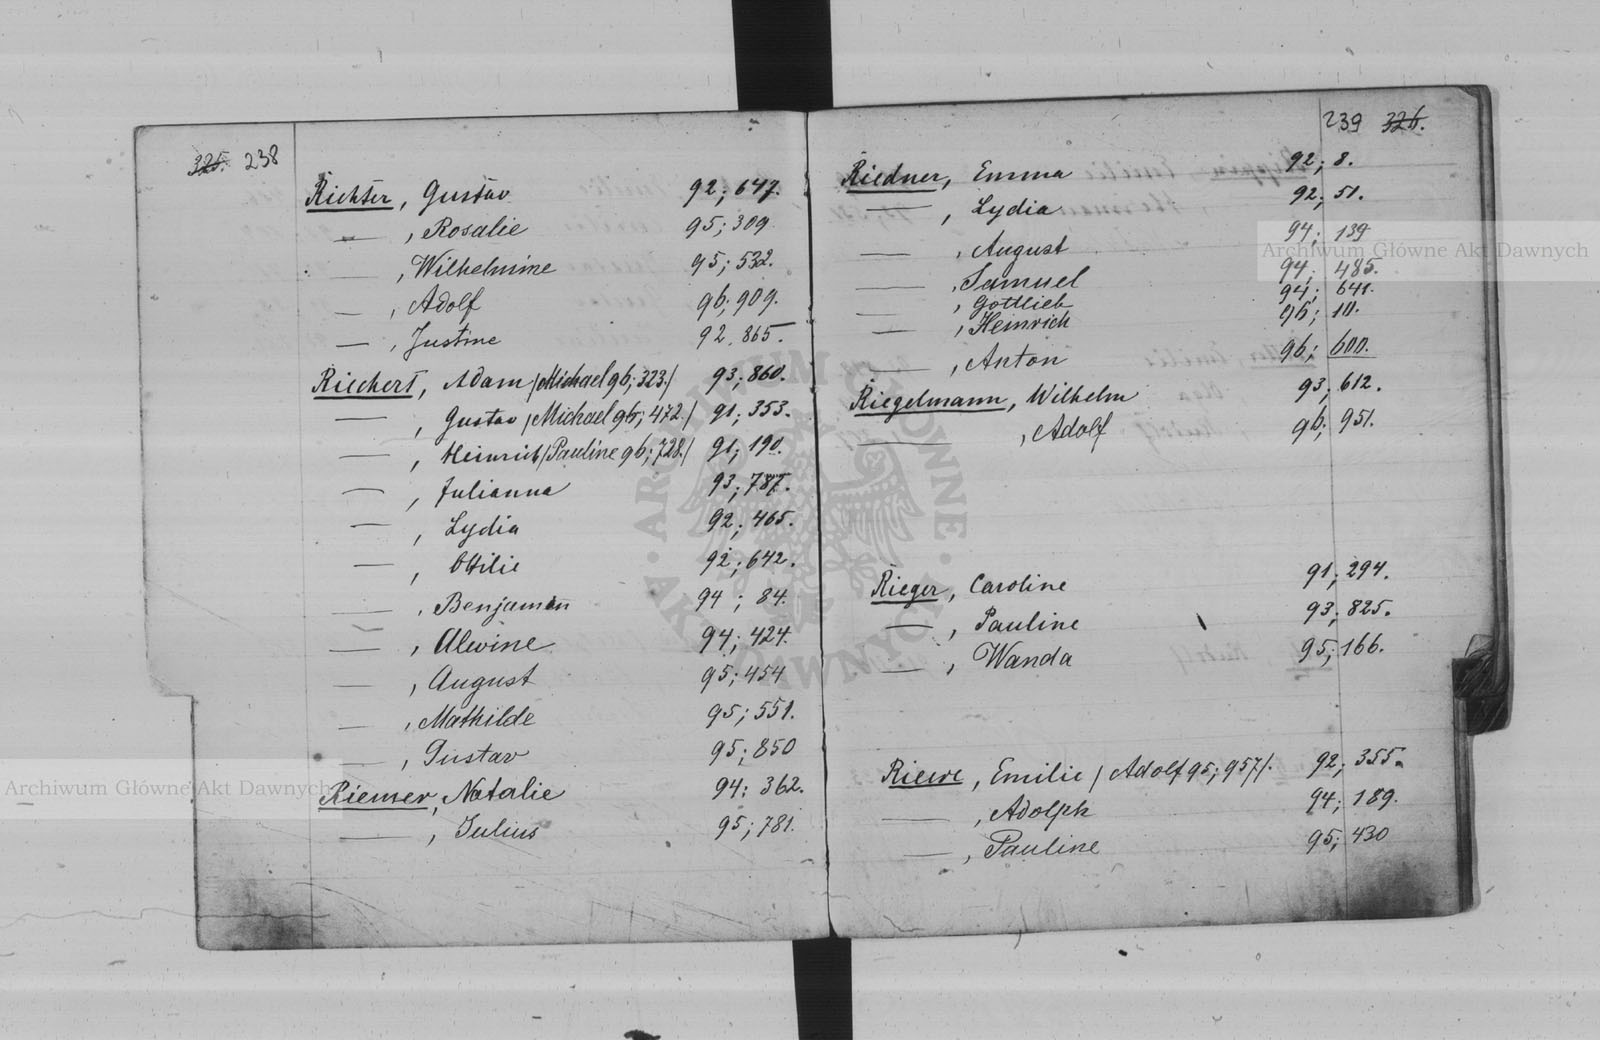 325. 238
Richter, Gustav 92; 647.
— , Rosalie 95; 309
— , Wilhelmine 95; 532.
— , Adolf 96; 909.
— , Justine 92. 865.
Riechert, Adam /Michael 96; 323./ 93; 860.
— , Gustav /Michael 96; 472./ 91; 353.
— , Heinrich /Pauline 96; 728./ 91; 190.
— , Julianna 93; 787.
— , Lydia 92; 465.
— , Ottilie 92; 642.
— , Benjamin 94; 84.
— , Alwine 94; 424.
— , August 95; 454
— , Mathilde 95; 551.
— , Gustav 95; 850
Riemer, Natalie 94; 362.
— , Julius 95; 781.
239 326.
Riedner, Emma 92; 8.
— , Lydia 92; 51.
— , August 94; 139
— , Samuel 94; 485.
— , Gottlieb 94; 641.
— , Heinrich 96; 10.
— , Anton 96; 600.
Riegelmann, Wilhelm 93; 612.
— , Adolf 96; 951.
Rieger, Caroline 91; 294.
— , Pauline 93; 825.
— , Wanda 95; 166.
Riewe, Emilie /Adolf 95; 957/. 92; 355.
— , Adolph 94; 189.
— , Pauline 95; 430
Archiwum Główne Akt Dawnych
Archiwum Główne Akt Dawnych
ARCHIWUM GŁÓWNE AKT DAWNYCH